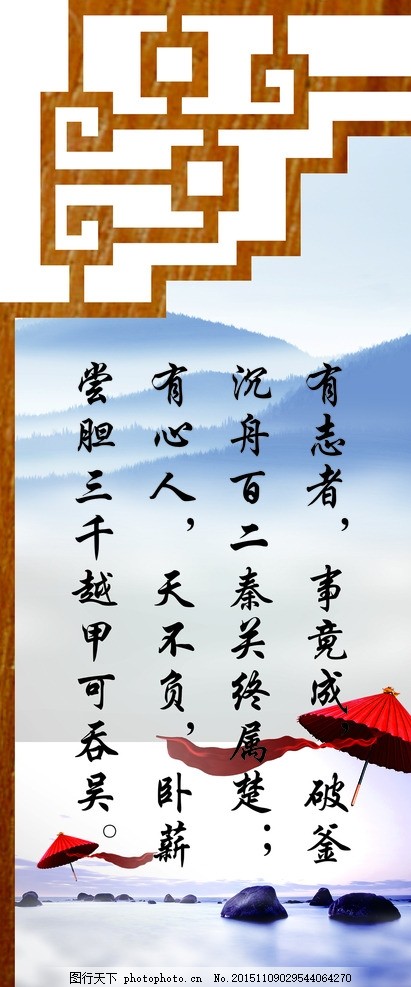 有志者，事竟成，破釜
沉舟百二秦关终属楚；
有心人，天不负，卧薪
尝胆三千越甲可吞吴。
图行天下 photophoto.cn No.20151109029544064270